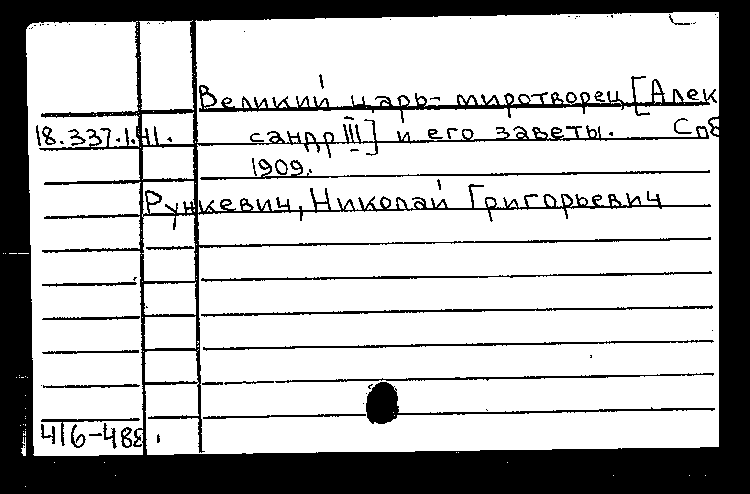 Великий царь-миротворец [Алек
18.337.1.41. сандр III] и его заветы. Спб
1909.
Рункевич, Николай Григорьевич
416-488.